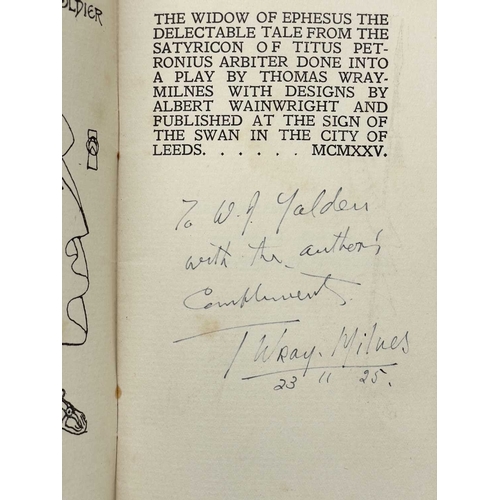 OLDIER
THE WIDOW OF EPHESUS THE
DELECTABLE TALE FROM THE
SATYRICON OF TITUS PET-
RONIUS ARBITER DONE INTO
A PLAY BY THOMAS WRAY-
MILNES WITH DESIGNS BY
ALBERT WAINWRIGHT AND
PUBLISHED AT THE SIGN OF
THE SWAN IN THE CITY OF
LEEDS. . . . . . . MCMXXV.
To W. J. Yalden
with the author's
Compliments.
T Wray-Milnes
23 11 25.